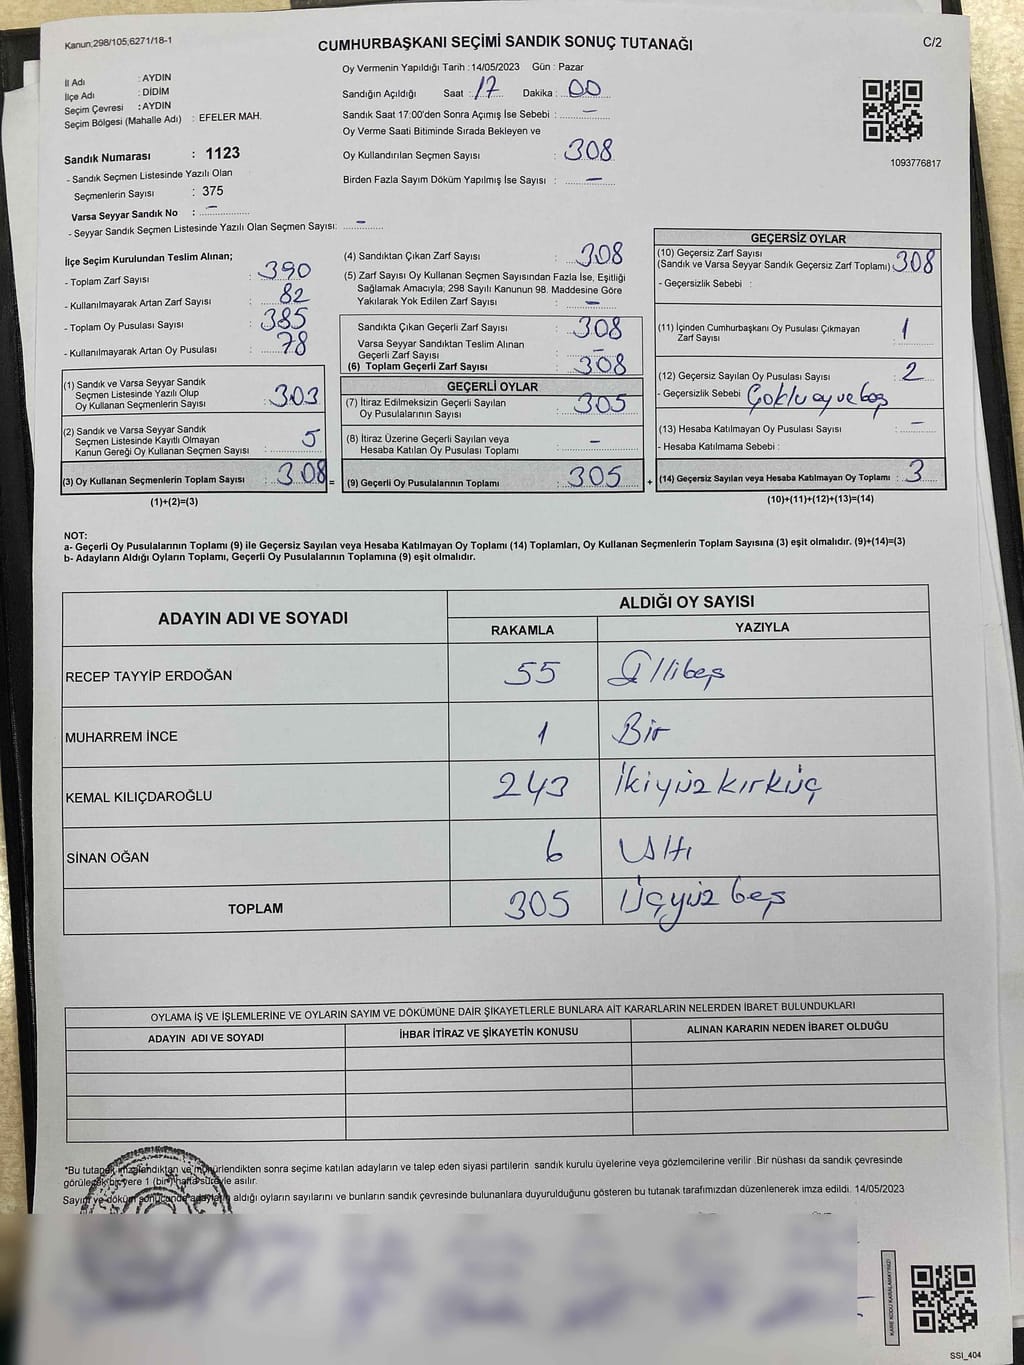 Kanun;298/105;6271/18-1
CUMHURBAŞKANI SEÇİMİ SANDIK SONUÇ TUTANAĞI
C/2
İl Adı : AYDIN
İlçe Adı : DİDİM
Seçim Çevresi : AYDIN
Seçim Bölgesi (Mahalle Adı) : EFELER MAH.
Sandık Numarası : 1123
- Sandık Seçmen Listesinde Yazılı Olan
Seçmenlerin Sayısı : 375
Varsa Seyyar Sandık No : –
- Seyyar Sandık Seçmen Listesinde Yazılı Olan Seçmen Sayısı: –
Oy Vermenin Yapıldığı Tarih : 14/05/2023 Gün : Pazar
Sandığın Açıldığı Saat : 17 Dakika : 00
Sandık Saat 17:00'den Sonra Açımış İse Sebebi : –
Oy Verme Saati Bitiminde Sırada Bekleyen ve
Oy Kullandırılan Seçmen Sayısı : 308
Birden Fazla Sayım Döküm Yapılmış İse Sayısı : –
1093776817
İlçe Seçim Kurulundan Teslim Alınan;
- Toplam Zarf Sayısı : 390
- Kullanılmayarak Artan Zarf Sayısı : 82
- Toplam Oy Pusulası Sayısı : 385
- Kullanılmayarak Artan Oy Pusulası : 78
(1) Sandık ve Varsa Seyyar Sandık
Seçmen Listesinde Yazılı Olup
Oy Kullanan Seçmenlerin Sayısı : 303
(2) Sandık ve Varsa Seyyar Sandık
Seçmen Listesinde Kayıtlı Olmayan
Kanun Gereği Oy Kullanan Seçmen Sayısı : 5
(3) Oy Kullanan Seçmenlerin Toplam Sayısı : 308 =
(1)+(2)=(3)
(4) Sandıktan Çıkan Zarf Sayısı : 308
(5) Zarf Sayısı Oy Kullanan Seçmen Sayısından Fazla İse, Eşitliği
Sağlamak Amacıyla; 298 Sayılı Kanunun 98. Maddesine Göre
Yakılarak Yok Edilen Zarf Sayısı : –
Sandıkta Çıkan Geçerli Zarf Sayısı : 308
Varsa Seyyar Sandıktan Teslim Alınan
Geçerli Zarf Sayısı : –
(6) Toplam Geçerli Zarf Sayısı : 308
GEÇERLİ OYLAR
(7) İtiraz Edilmeksizin Geçerli Sayılan
Oy Pusulalarının Sayısı : 305
(8) İtiraz Üzerine Geçerli Sayılan veya
Hesaba Katılan Oy Pusulası Toplamı : –
(9) Geçerli Oy Pusulalarının Toplamı : 305 +
GEÇERSİZ OYLAR
(10) Geçersiz Zarf Sayısı
(Sandık ve Varsa Seyyar Sandık Geçersiz Zarf Toplamı) : 308
- Geçersizlik Sebebi :
(11) İçinden Cumhurbaşkanı Oy Pusulası Çıkmayan
Zarf Sayısı : 1
(12) Geçersiz Sayılan Oy Pusulası Sayısı : 2
- Geçersizlik Sebebi : Çoklu oy ve boş
(13) Hesaba Katılmayan Oy Pusulası Sayısı : –
- Hesaba Katılmama Sebebi :
(14) Geçersiz Sayılan veya Hesaba Katılmayan Oy Toplamı : 3
(10)+(11)+(12)+(13)=(14)
NOT:
a- Geçerli Oy Pusulalarının Toplamı (9) ile Geçersiz Sayılan veya Hesaba Katılmayan Oy Toplamı (14) Toplamları, Oy Kullanan Seçmenlerin Toplam Sayısına (3) eşit olmalıdır. (9)+(14)=(3)
b- Adayların Aldığı Oyların Toplamı, Geçerli Oy Pusulalarının Toplamına (9) eşit olmalıdır.
ADAYIN ADI VE SOYADI
ALDIĞI OY SAYISI
RAKAMLA YAZIYLA
RECEP TAYYİP ERDOĞAN 55 Ellibeş
MUHARREM İNCE 1 Bir
KEMAL KILIÇDAROĞLU 243 İkiyüzkırküç
SİNAN OĞAN 6 Altı
TOPLAM 305 Üçyüz beş
OYLAMA İŞ VE İŞLEMLERİNE VE OYLARIN SAYIM VE DÖKÜMÜNE DAİR ŞİKAYETLERLE BUNLARA AİT KARARLARIN NELERDEN İBARET BULUNDUKLARI
ADAYIN ADI VE SOYADI İHBAR İTİRAZ VE ŞİKAYETİN KONUSU ALINAN KARARIN NEDEN İBARET OLDUĞU
*Bu tutanak imzalandıktan ve mühürlendikten sonra seçime katılan adayların ve talep eden siyasi partilerin sandık kurulu üyelerine veya gözlemcilerine verilir .Bir nüshası da sandık çevresinde
görülecek bir yere 1 (bir) hafta süreyle asılır.
Sayım ve döküm sonucunda adayların aldığı oyların sayılarını ve bunların sandık çevresinde bulunanlara duyurulduğunu gösteren bu tutanak tarafımızdan düzenlenerek imza edildi. 14/05/2023
KARE KODU KARALAMAYINIZ!
SSI_404